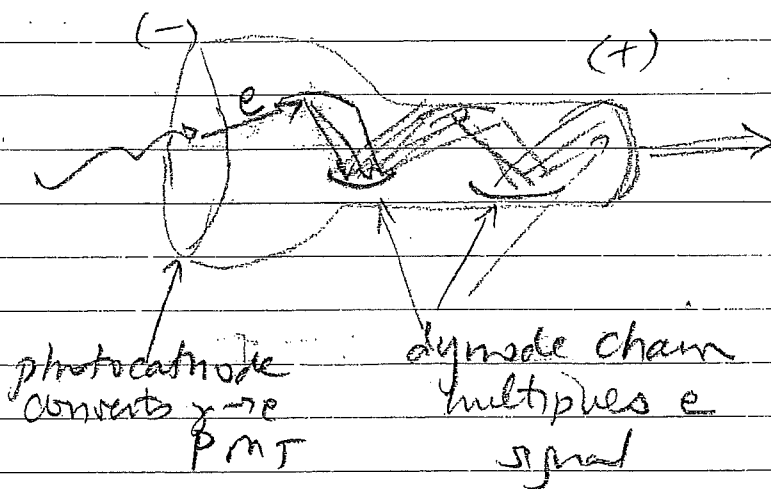 (-)
(+)
e
photocathode
converts γ→e
PMT
dynode chain
multiplies e
signal